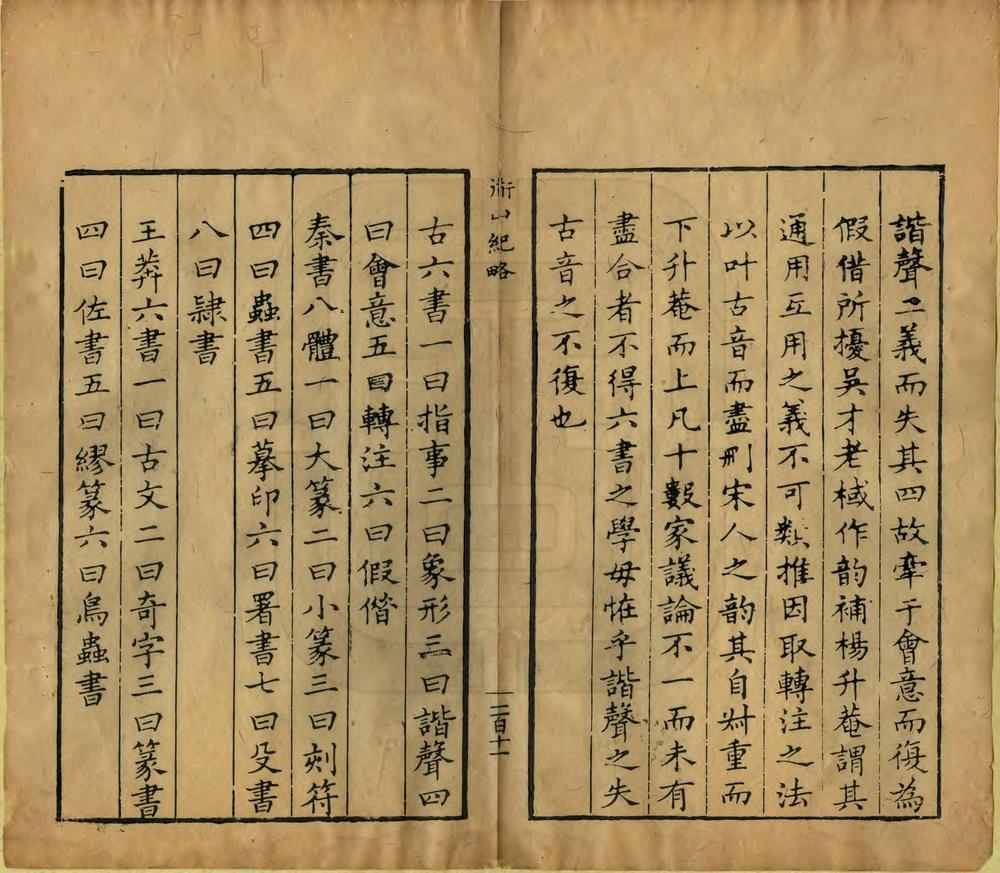 諧聲二義而失其四故牽于會意而復為
假借所擾吳才老棫作韵補楊升菴謂其
通用互用之義不可類推因取轉注之法
以叶古音而盡刪宋人之韵其自尌重而
下升菴而上凡十數家議論不一而未有
盡合者不得六書之學毋恠乎諧聲之失
古音之不復也
衡山紀略
二百十一
古六書一曰指事二曰象形三曰諧聲四
曰會意五曰轉注六曰假借
秦書八體一曰大篆二曰小篆三曰刻符
四曰蟲書五曰摹印六曰署書七曰殳書
八曰隷書
王莽六書一曰古文二曰奇字三曰篆書
四曰佐書五曰繆篆六曰鳥蟲書